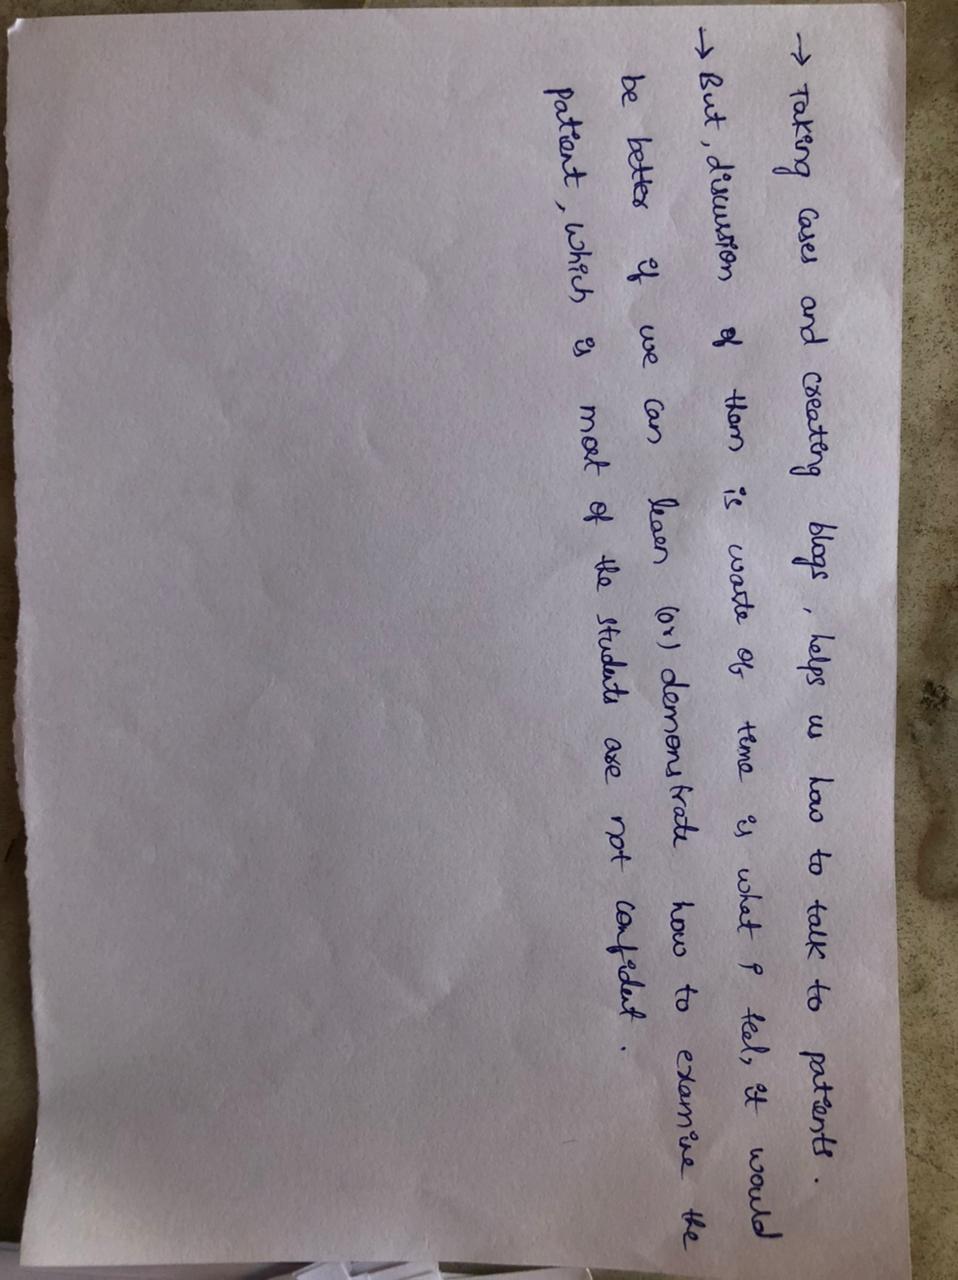 → Taking cases and creating blogs, helps us how to talk to patients.
→ But, discussion of them is waste of time is what I feel, it would
be better if we can learn (or) demonstrate how to examine the
patient, which is most of the students are not confident.